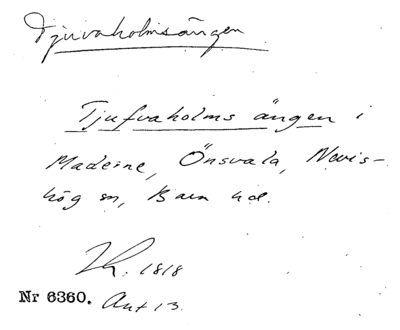 Tjuvaholmsängen
Tjufvaholms ängen i
Maderne, Önsvala, Nevis-
hög sn, Bara hd.
1818
Nr 6360. Ant 13.